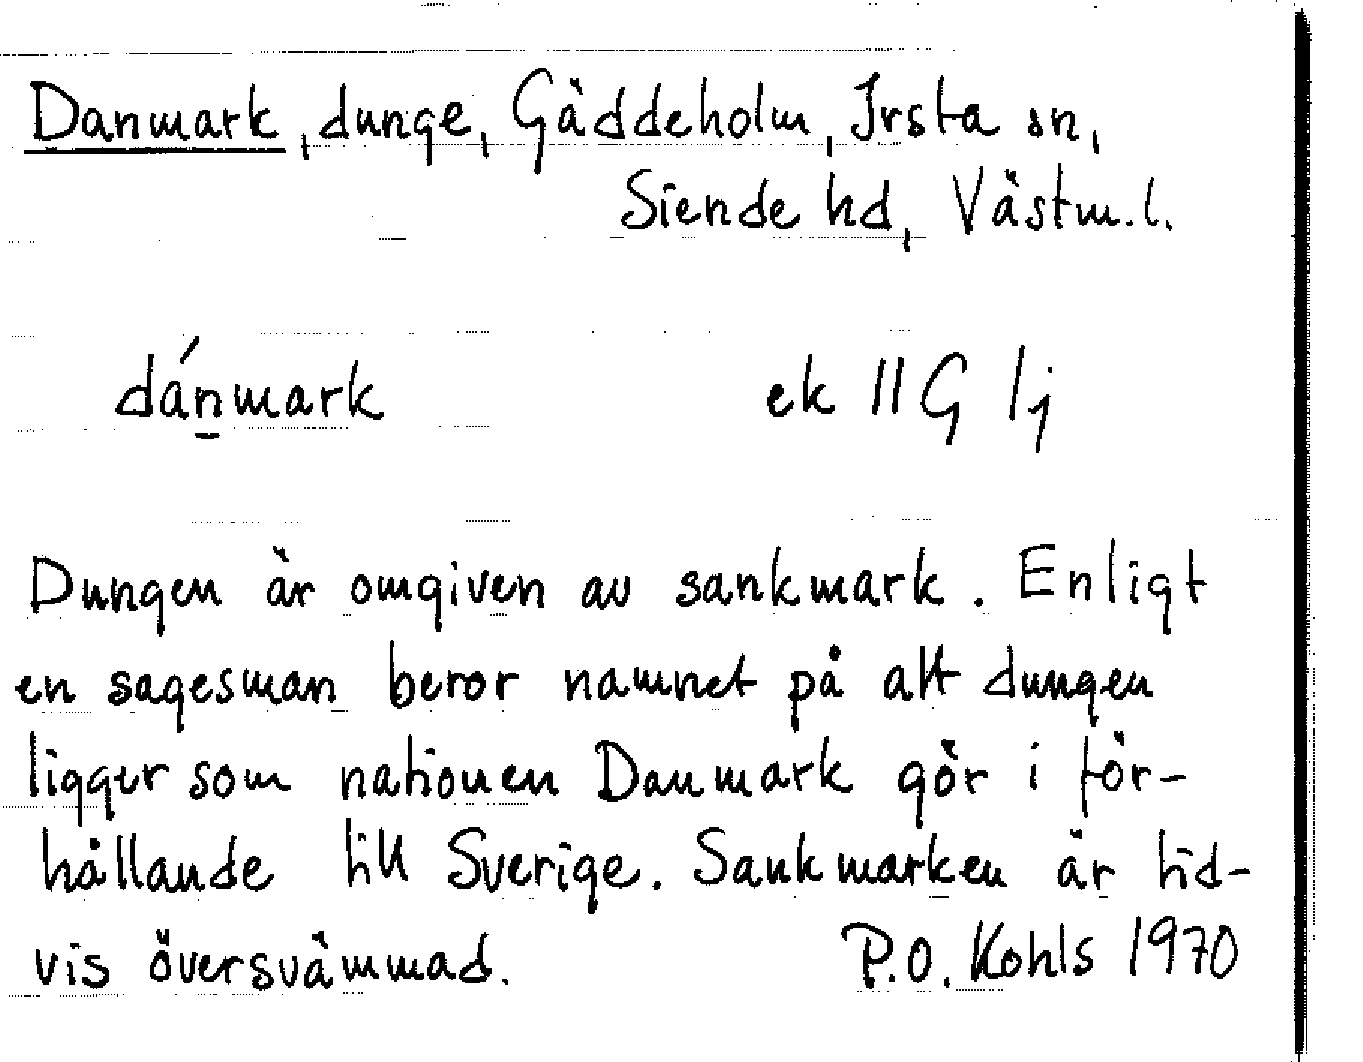 Danmark, dunge, Gäddeholm, Irsta sn,
Siende hd, Västm.l.
dánmark ek 11G 1j
Dungen är omgiven av sankmark. Enligt
en sagesman beror namnet på att dungen
ligger som nationen Danmark gör i för-
hållande till Sverige. Sankmarken är tid-
vis översvämmad. P.O. Kohls 1970